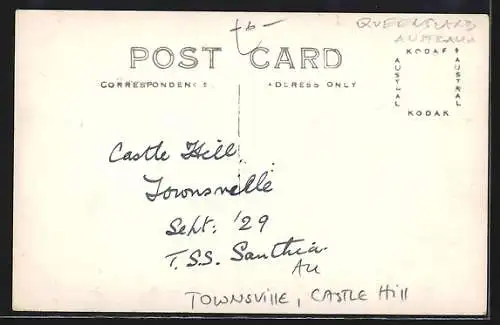 QUEENSLAND
AUSTRALIA
POST CARD
CORRESPONDENCE
ADDRESS ONLY
KODAK
AUSTRAL
AUSTRAL
KODAK
Castle Hill,
Townsville
Seht: '29
T.S.S. Santhia.
Au
TOWNSVILLE, CASTLE Hill